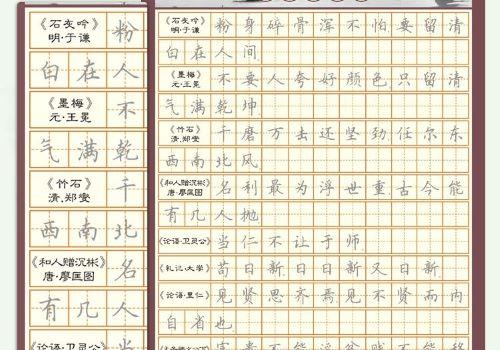 《石灰吟》
明·于谦
粉
白在人
《墨梅》
元·王冕
不
气满乾
《竹石》
清.郑燮
千
西南北
《和人赠沉彬》
唐·廖匡图
名
有几人
《论语·卫灵公》
当
《石灰吟》
明·于谦
粉身碎骨浑不怕要留清
白在人间
《墨梅》
元·王冕
不要人夸好颜色只留清
气满乾坤
《竹石》
清.郑燮
千磨万击还坚劲任尔东
西南北风
《和人赠沉彬》
唐·廖匡图
名利最为浮世重古今能
有几人抛
《论语·卫灵公》
当仁不让于师
《礼记·大学》
苟日新日日新又日新
《论语·里仁》
见贤思齐焉见不贤而内
自省也
富贵不能淫贫贱不能移